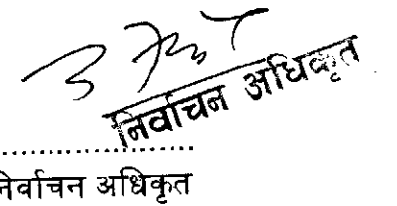 निर्वाचन अधिकृत
..............................
निर्वाचन अधिकृत